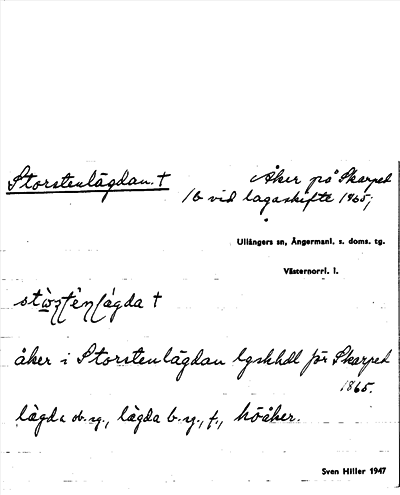 Storstenlägdan. †
Åker på Skarped
1B vid lagaskifte 1865;
Ullångers sn, Ångermanl. s. doms. tg.
Västernorrl. l.
åker i Storstenlägdan lgskhdl för Skarped
1865.
lägda ob. sg., lägda b. sg., f., höåker.
Sven Hiller 1947